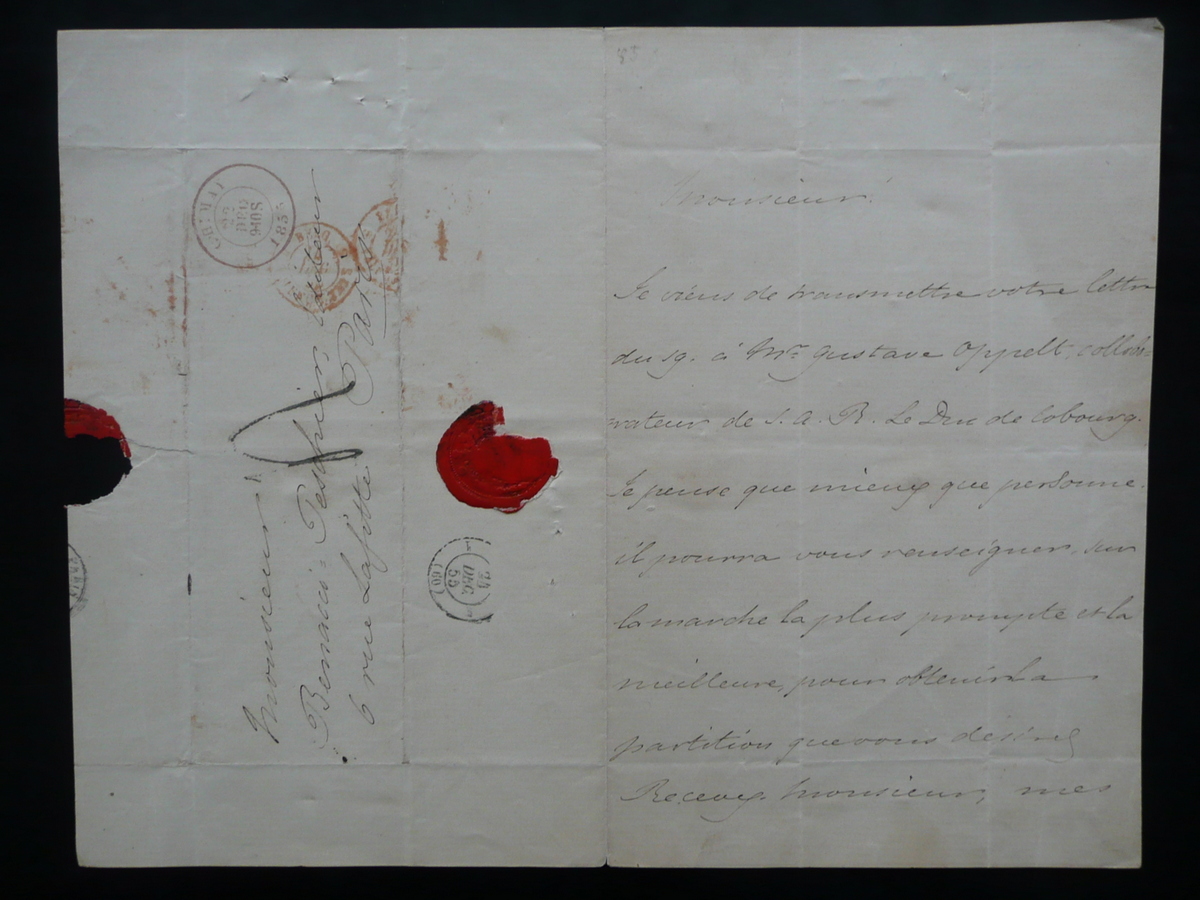 Monsieur
Benacci-Peschier, Editeur
6 rue Lafitte Paris
25
DEC
55
(60)
83
Monsieur.
Je viens de transmettre votre lettre
du 19. à Mr Gustave Oppelt, collabo-
rateur de S. A. R. Le Duc de Cobourg.
Je pense que mieux que personne
il pourra vous renseigner, sur
la marche la plus prompte et la
meilleure, pour obtenir la
partition que vous désirez
Recevez, Monsieur, mes